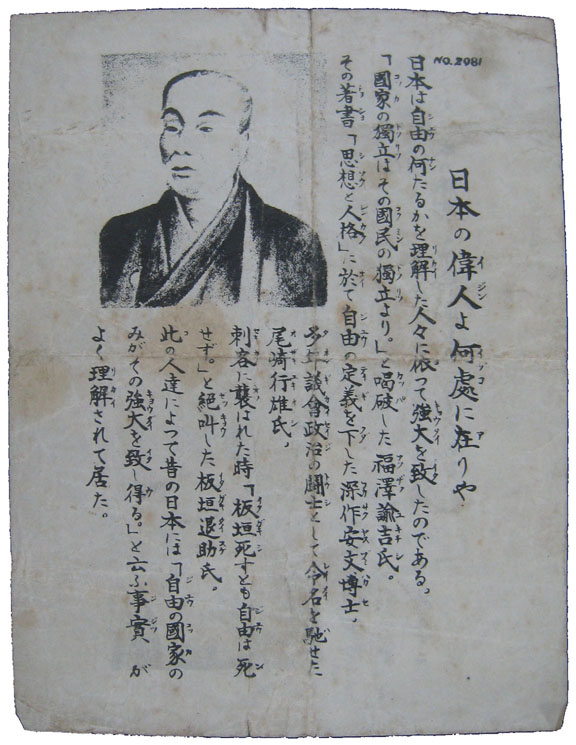 NO.2981
日本の偉人よ何處に在りや
日本は自由の何たるかを理解した人々に依つて強大を致したのである。
「國家の獨立はその國民の獨立より。」と喝破した福澤諭吉氏。
その著書「思想と人格」に於て自由の定義を下した深作安文博士。
多年議會政治の鬪士として令名を馳せた
尾崎行雄氏。
刺客に襲はれた時「板垣死すとも自由は死
せず。」と絶叫した板垣退助氏。
此の人達によつて昔の日本には「自由の國家の
みがその強大を致し得る。」と云ふ事實が
よく理解されて居た。